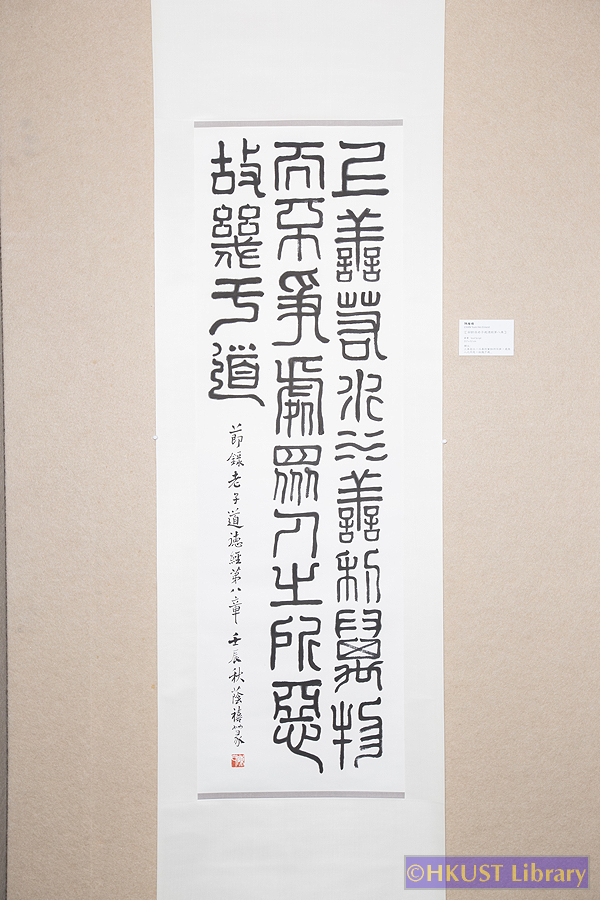 上善若水〻善利萬物
而不爭處眾人之所惡
故幾于道
節錄老子道德經第八章 壬辰秋蔭 篆
©HKUST Library